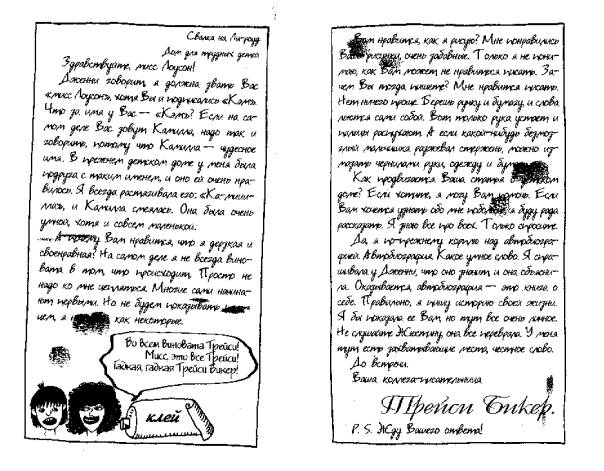 Свалка на Ли-роуд
Дом для трудных детей
Здравствуйте, мисс Лоусон!
Дженни говорит, я должна звать Вас
«мисс Лоусон», хотя Вы и подписались «Кэм».
Что за имя у Вас — «Кэм»? Если на са-
мом деле Вас зовут Камилла, надо так и
говорить, потому что Камилла — чудесное
имя. В прежнем детском доме у меня была
подруга с таким именем, и оно ей очень нра-
вилось. Я всегда растягивала его: «Ка-миии-
лла», и Камилла смеялась. Она была очень
умной, хотя и совсем маленькой.
А почему Вам нравится, что я дерзкая и
своенравная? На самом деле я не всегда вино-
вата в том, что происходит. Просто не
надо ко мне цепляться. Многие сами начина-
ют первыми. Но не будем показывать
чем, я н как некоторые.
Во всем виновата Трейси!
Мисс, это все Трейси!
Гадкая, гадкая Трейси Бикер!
клей
Вам нравится, как я рисую? Мне понравились
Ваши рисунки, очень забавные. Только я не пони-
маю, как Вам может не нравиться писать. За-
чем Вы тогда пишете? Мне нравится писать.
Нет ничего проще. Берешь ручку и бумагу, и слова
льются сами собой. Вот только рука устает и
пальцы распухают. А если какой-нибудь безмоз-
глый мальчишка разжевал стержень, можно из-
мазать чернилами руки, одежду и бумагу.
Как продвигается Ваша статья о детском
доме? Если хотите, я могу Вам помочь. Если
Вам хочется узнать обо мне побольше, я буду рада
рассказать. Я знаю все про всех. Только спросите.
Да, я по-прежнему корплю над автобиогра-
фией. Автобиография. Какое умное слово. Я спра-
шивала у Дженни, что оно значит, и она объясни-
ла. Оказывается, автобиография — это книга о
себе. Правильно, я пишу историю своей жизни.
Я бы показала ее Вам, но тут все очень личное.
Не слушайте Жюстину, она все переврала. У меня
тут есть захватывающие места, честное слово.
До встречи.
Ваша коллега-писательница
Трейси Бикер.
P. S. Жду Вашего ответа!